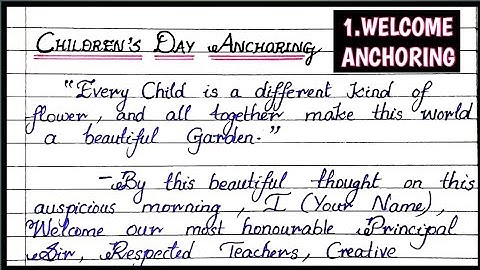 CHILDREN'S DAY ANCHORING
1.WELCOME
ANCHORING
"Every Child is a different kind of
flower, and all together make this world
a beautiful Garden."
- By this beautiful thought on this
auspicious morning, I (Your Name),
Welcome our most honourable Principal
Sir, Respected Teachers, Creative